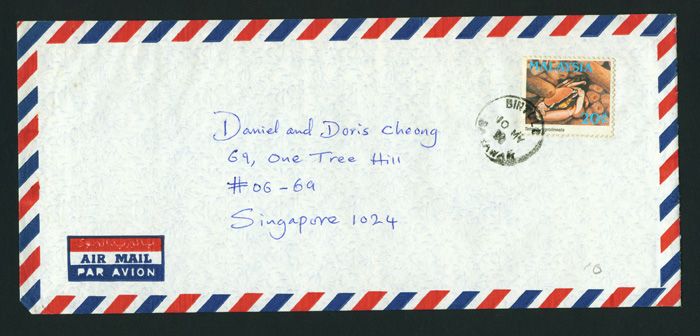 MALAYSIA
20¢
BINTULU
10 MY
SARAWAK
Daniel and Doris Cheong
69, One Tree Hill
#06-69
Singapore 1024
AIR MAIL
PAR AVION